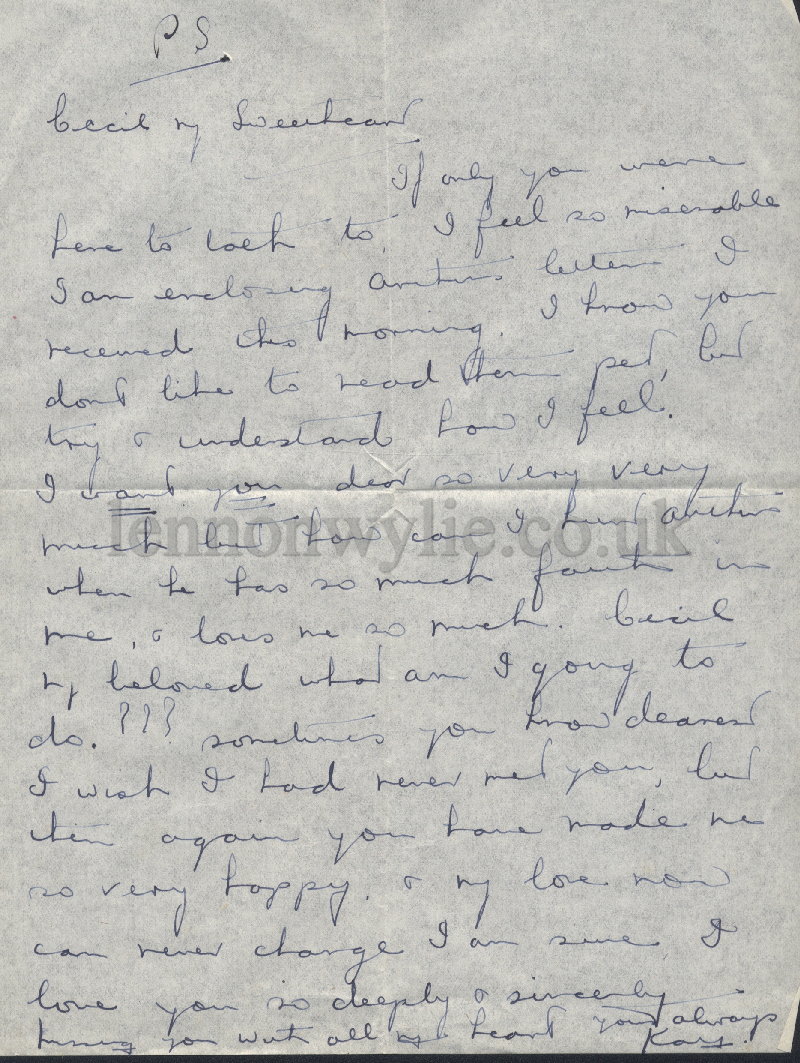 P S
Cecil my Sweetheart
If only you were
here to talk to, I feel so miserable
I am enclosing Arthurs letter I
received this morning. I know you
dont like to read them pet, but
try & understand how I feel.
I want you dear so very very
much but how can I hurt Arthur
when he has so much faith in
me, & loves me so much. Cecil
my beloved what am I going to
do. ??? sometimes you know dearest
I wish I had never met you, but
then again you have made me
so very happy. & my love now
can never change I am sure I
love you so deeply & sincerely
you with all my heart your always
Kay.
lennonwylie.co.uk